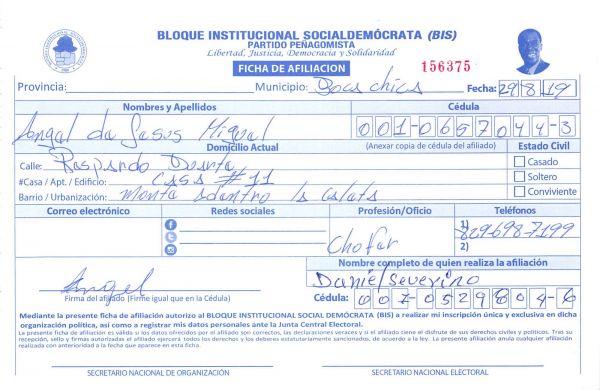 BLOQUE INSTITUCIONAL SOCIALDEMÓCRATA (BIS)
PARTIDO PEÑAGOMISTA
Libertad, Justicia, Democracia y Solidaridad
FICHA DE AFILIACION
156375
Provincia: Municipio: Boca chica Fecha: 29/8/19
Nombres y Apellidos Cédula
Angel de Jesus Miguel 001-0657044-3
(Anexar copia de cédula del afiliado)
Domicilio Actual Estado Civil
Calle: Casado
#Casa / Apt. / Edificio: Casa #11 Soltero
Barrio / Urbanización: Monte adentro Conviviente
Correo electrónico Redes sociales Profesión/Oficio Teléfonos
1) 829-698-7199
Chofer 2)
Nombre completo de quien realiza la afiliación
Angel Daniel Severino
Firma del afiliado (Firme igual que en la Cédula) Cédula: 007-0529804-6
Mediante la presente ficha de afiliación autorizo al BLOQUE INSTITUCIONAL SOCIAL DEMÓCRATA (BIS) a realizar mi inscripción única y exclusiva en dicha
organización política, así como a registrar mis datos personales ante la Junta Central Electoral.
La presente ficha de afiliación es válida si los datos ofrecidos por el afiliado son correctos, las declaraciones veraces y si el afiliado tiene el disfrute de sus derechos civiles y políticos. Tras su
recepción, sello y firmas autorizadas el afiliado ejercerá todos los derechos y los deberes estatutariamente sancionados, de acuerdo a la ley. La presente afiliación anula cualquier afiliación
realizada con anterioridad a la fecha que aparece en esta ficha.
SECRETARIO NACIONAL DE ORGANIZACIÓN SECRETARIO NACIONAL ELECTORAL